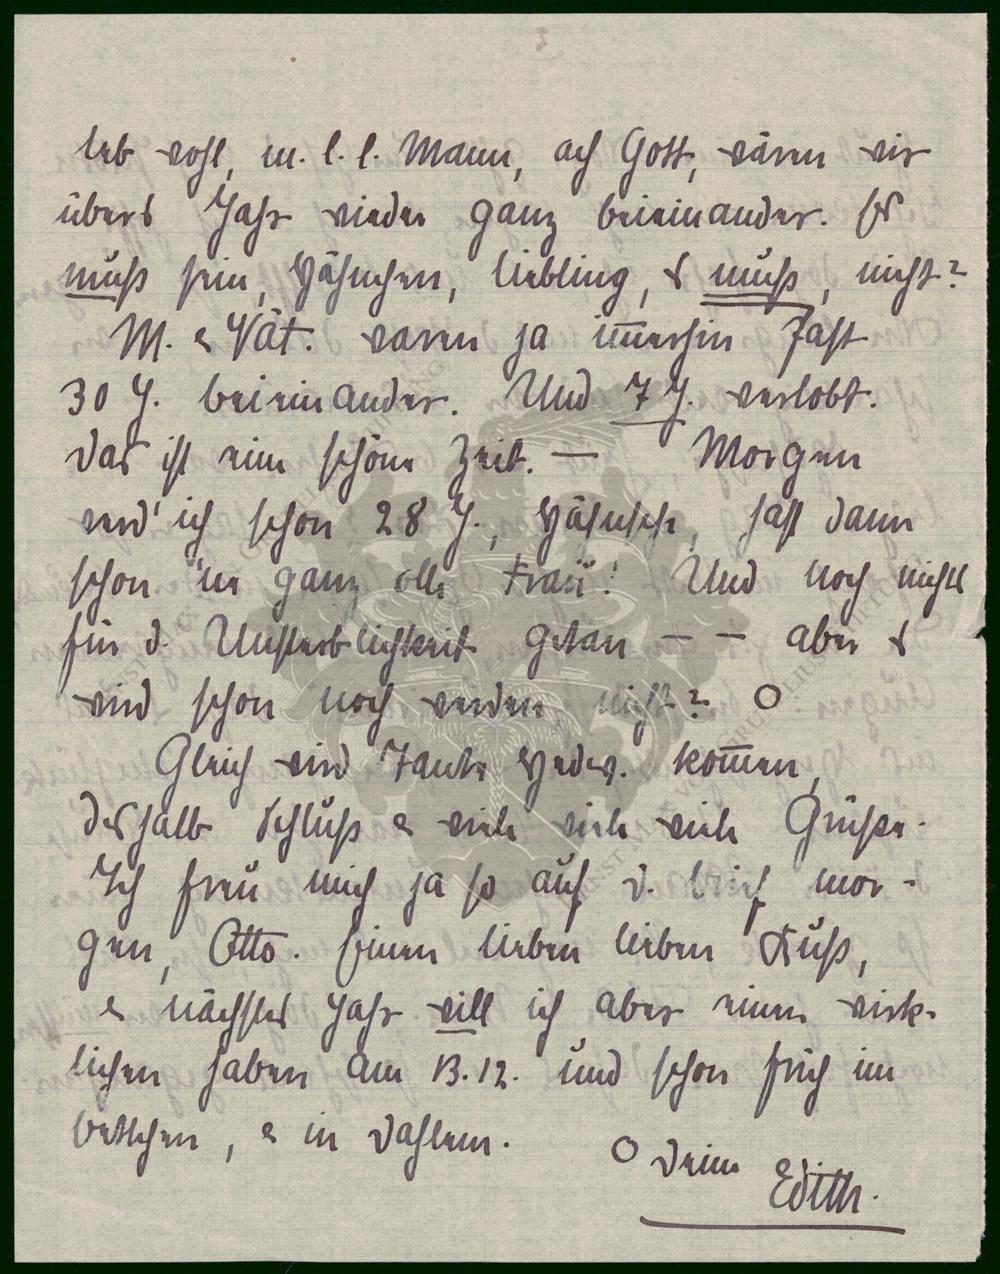 leb wohl, m. l. l. Mann, ach Gott, wären wir
übers Jahr wieder ganz beieinander. Es
muß sein, Hähnchen, Liebling, es muß, nicht?
M. & Vát. waren ja im̄erhin fast
30 J. beieinander. Und 7 J. verlobt.
Das ist eine schöne Zeit. — Morgen
werd' ich schon 28 J., Hähnsche, hast dann
schon 'ne ganz olle Frau! Und noch nichts
für d. Unsterblichkeit getan — — aber es
wird schon noch werden, nicht? O
Gleich wird Tante Hedw. kom̄en,
deshalb Schluß & viele viele viele Grüße.
Ich freu mich ja so auf d. Brief mor-
gen, Otto. Einen lieben lieben Kuß,
& nächstes Jahr will ich aber einen wirk-
lichen haben am 13.12. und schon früh im
Bettchen, & in Dahlem.
O Deine
Edith.